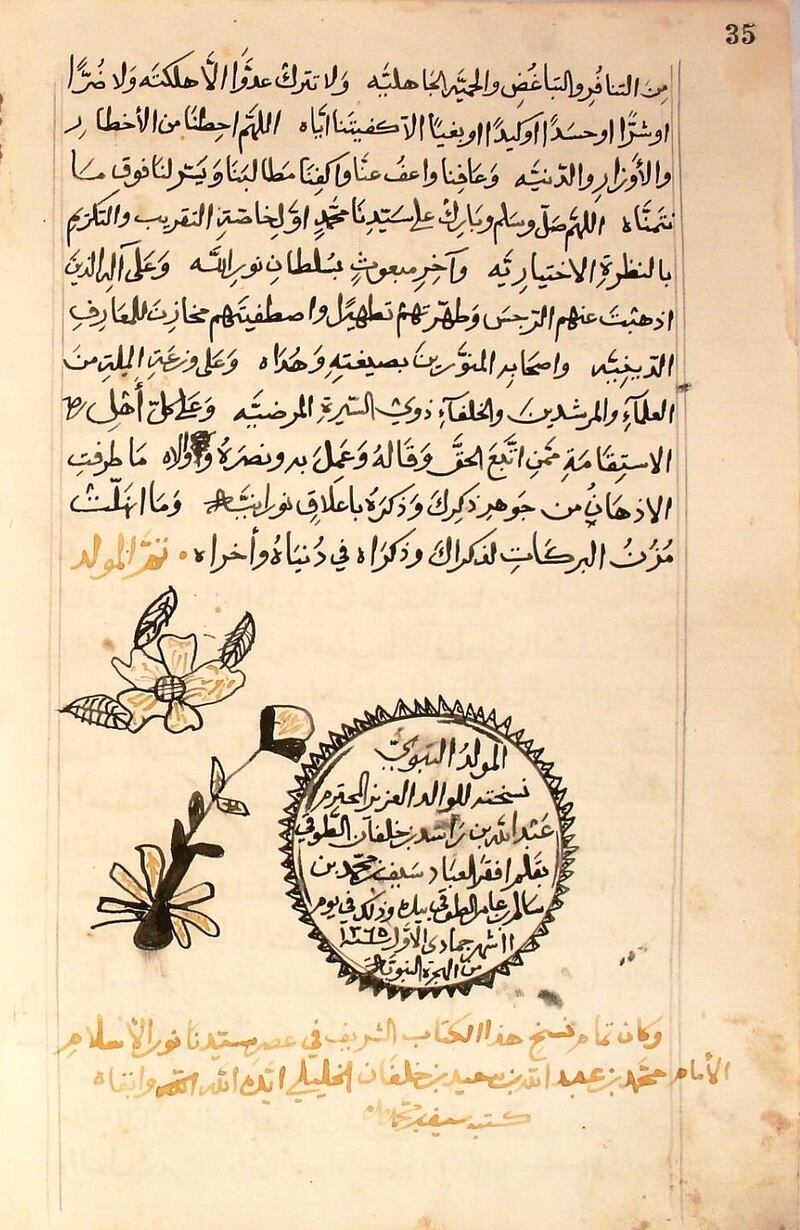 35
مِنَ التنافُرِ والتباغُضِ والحميَّةِ الجاهليَّه ولا تترك عدوًّا الَّا هلكته ولا ضُرًّا
او شرًّا او حسدًا او كيدًا او بغيًا الا كفيتنا ايّاه اللهمّ احطنا من الأخطار
والأوزارِ والدّنيّه وعافِنا واعفُ عنّا واكفِنا مطالبَنا ويسّر لنا فوق ما
نتمنَّاه اللهمَّ صلّ وسلم وبارك على سيّدِنا محمّدٍ اوّلِ خاصّةِ التقريب والتكرّيم
بالنظرةِ الاختياريّه وآخِرِ مبعوثٍ بسُلطانِ نورِ اللّه وعَلى آلهِ الذينَ
اذهبتَ عنهم الرّجسَ وطهّرتهُمْ تطهيرًا واصطفيتَهم مخازِنَ للمعارِفِ
الدّينيّه واصحابِه المنوّرينَ بصيغتهِ وهُدَاه وعلى وزعَةِ الملّةِ منَ
العلمآءِ والمرشدينَ والخلفآءِ ذوي السّيرةِ المرضيّه وعَلى كلّ أهْلِ
الاستِقامَةِ ممّنِ اتّبعَ الحقَّ وقالهُ وعَمِلَ به ونصرَهُ ووالاه ما طرفتِ
الاذهانُ من جوهرِ ذكرِكَ وذكرَهُ باعلاقٍ نورانيّه وما انهلّتْ
مُزْنُ البركاتِ لذكراكَ وذكرَاه في دُنيَاهُ وأخراه • تمَّ المولد
المولدُ النبويّ
نسخته للوالد العزيز المحترم
عَبْد اللّه بن راشد بن خلفان الطوقي
بقلم افقر العباد سيف بن محمّد بن
سالم بن عامر الطوقي بيده وذلك في يوم
١١ شهر جمادى الاوّل سنة ١٣٦٥
من الهجرة النبويّة
وكان تمام نسخ هذا الكتاب الشريف في عصر سيّدنا نور الأسلام
الأمام محمّد بن عبد اللّه بن سعيد بن خلفان الخليلي ايّده اللّه وابقاه
كتبه سيف بن محمّد